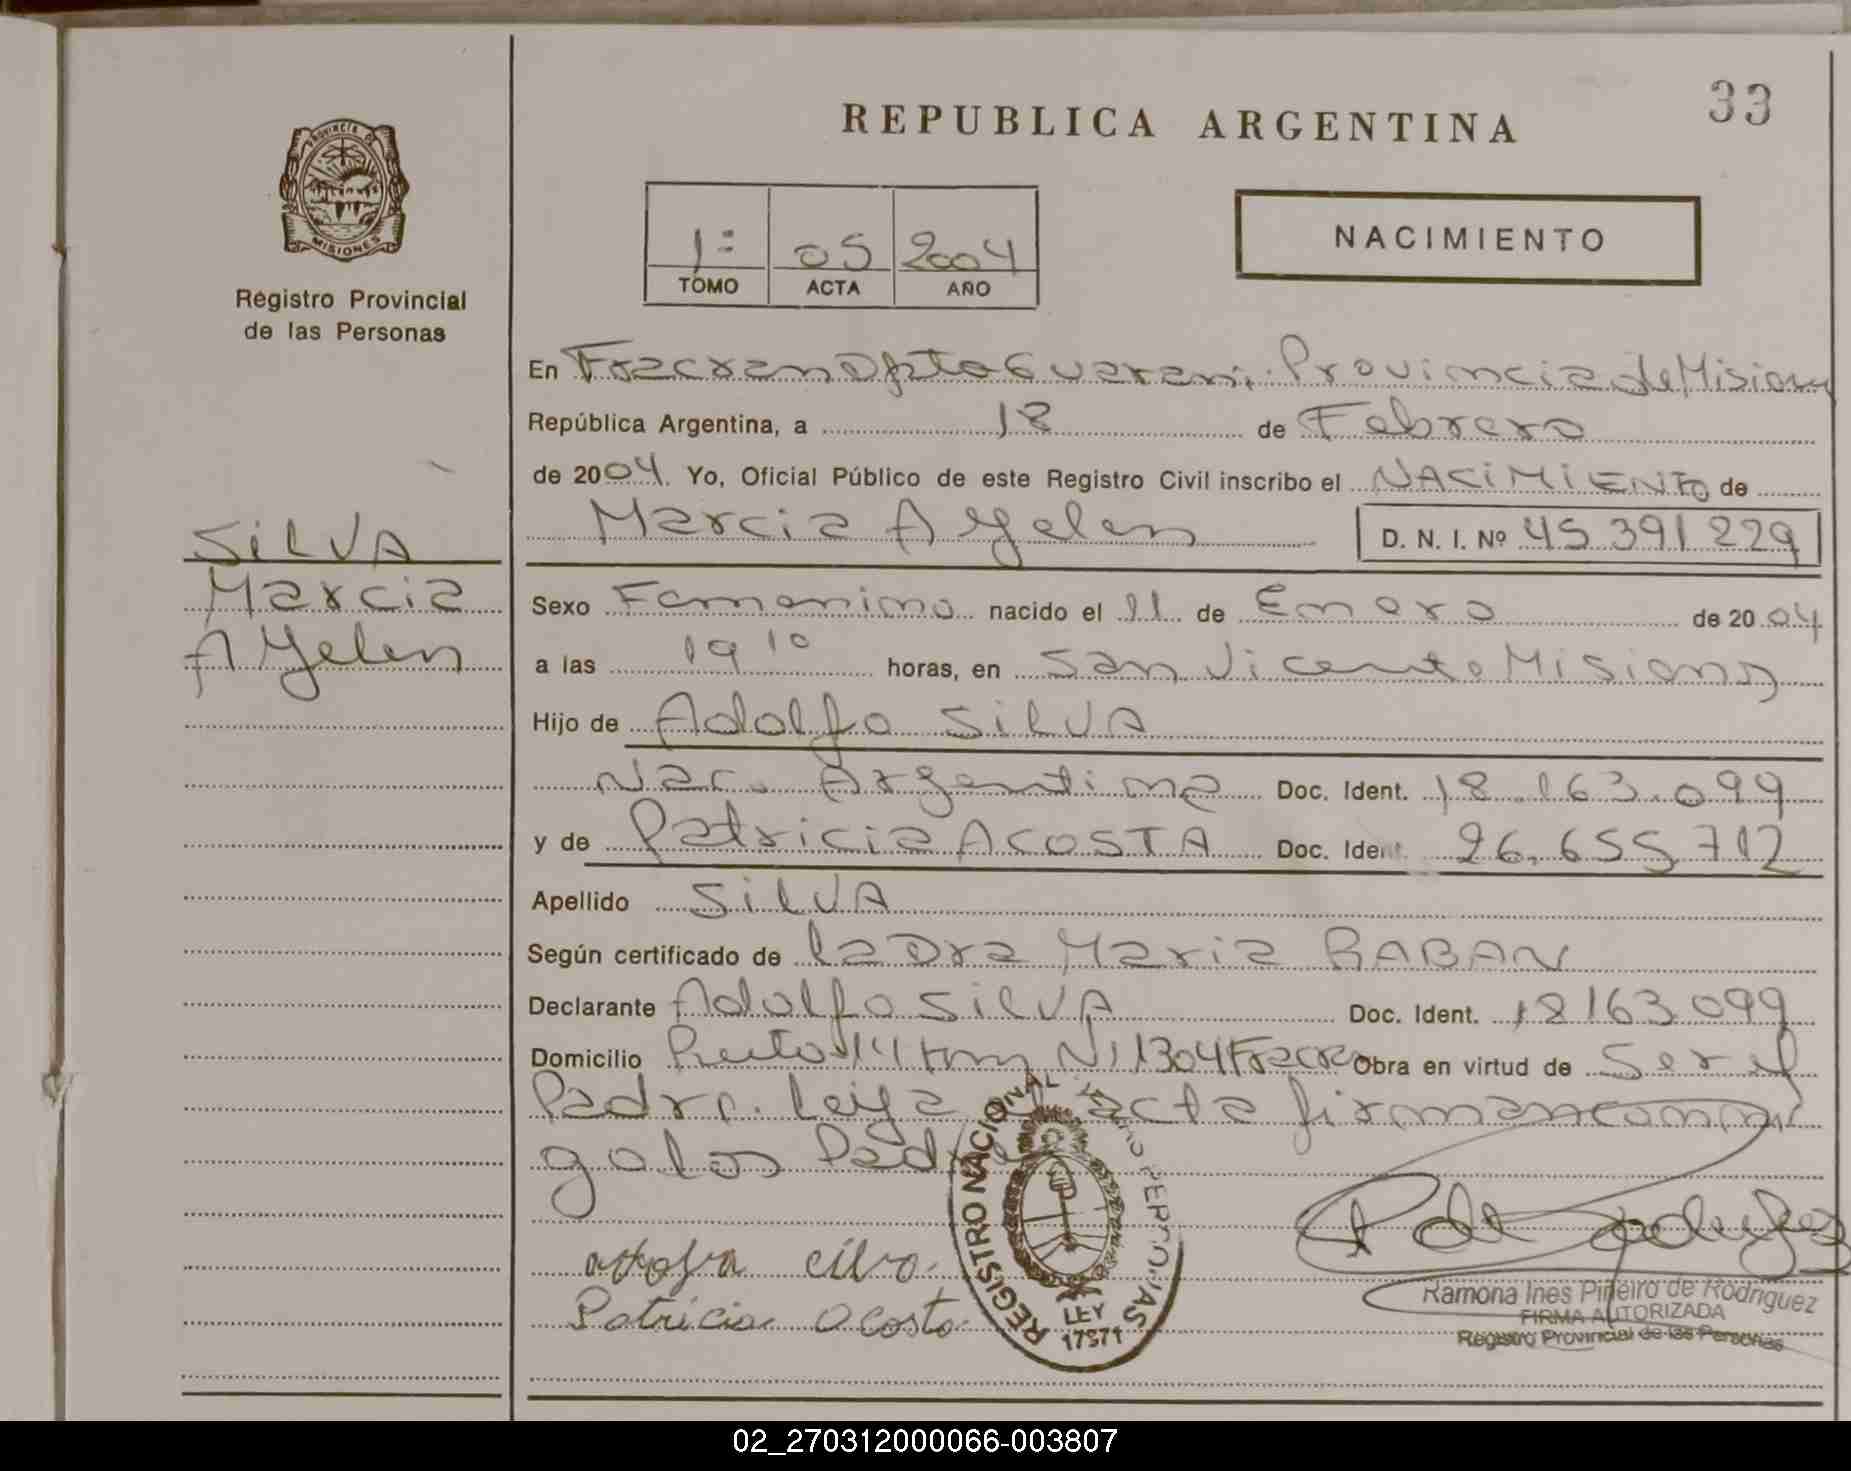 33
REPUBLICA ARGENTINA
PROVINCIA DE
MISIONES
Registro Provincial
de las Personas
NACIMIENTO
1º 05 2004
TOMO ACTA AÑO
En Fracran Dpto Guarani Provincia de Misiones
República Argentina, a 18 de Febrero
de 2004. Yo, Oficial Público de este Registro Civil inscribo el NACIMIENTO de
Marcia Ayelen D. N. I. Nº 45.391.229
SILVA
Marcia
Ayelen
Sexo Femenino nacido el 11 de Enero de 2004
a las 19 10 horas, en San Vicente Misiones
Hijo de Adolfo SILVA
Nac. Argentina Doc. Ident. 18.163.099
y de Patricia ACOSTA Doc. Ident. 26.655.712
Apellido SILVA
Según certificado de la Dra Maria RABAN
Declarante Adolfo SILVA Doc. Ident. 18163.099
Domicilio Ruta 14 Km 1304 Fracran Obra en virtud de Ser el
Padre. Leída el acta firman conmi
go los Padres
Adolfo cilva.
Patricia acosta.
REGISTRO NACIONAL DE LAS PERSONAS
LEY
17671
Ramona Ines Piñeiro de Rodriguez
FIRMA AUTORIZADA
Registro Provincial de las Personas
02_270312000066-003807